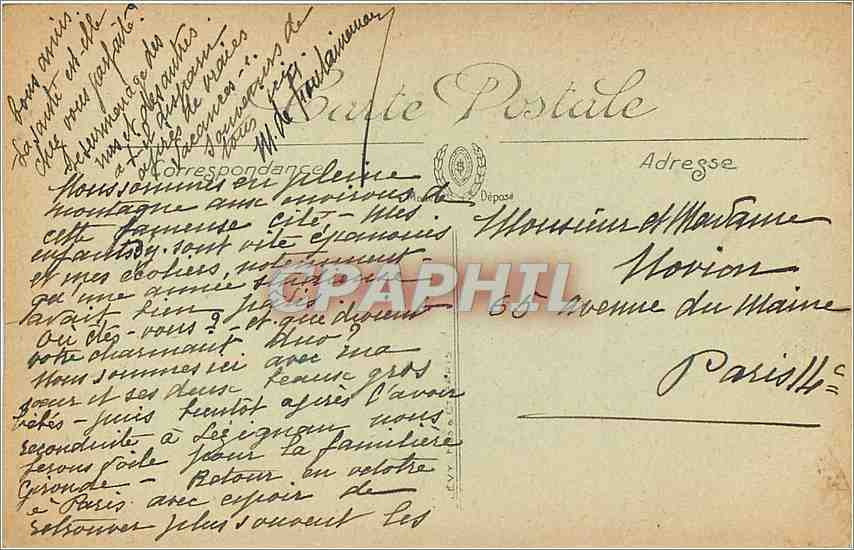 Carte Postale
Correspondance
Adresse
Modèle Déposé
Nous sommes en pleine
montagne aux environs de
cette fameuse cité - Mes
enfants s'y sont vite épanouis
et mes écoliers, notamment
qu'une année studieuse
avait bien pâlis.
Où êtes-vous ? et que devient
votre charmant duo ?
Nous sommes ici avec ma
sœur et ses deux beaux gros
bébés - puis bientôt après l'avoir
reconduite à Lézignan nous
ferons voile pour la familière
Gironde - Retour en octobre
à Paris avec espoir de
retrouver plus souvent les
bons amis.
La santé est-elle
chez vous parfaite ?
Le surmenage des
uns et des autres
a-t-il disparu
après de vraies
vacances - ?
Souvenirs de
tous ici
M. de
Monsieur et Madame
Novion
65 avenue du Maine
Paris 14e
CPAPHIL